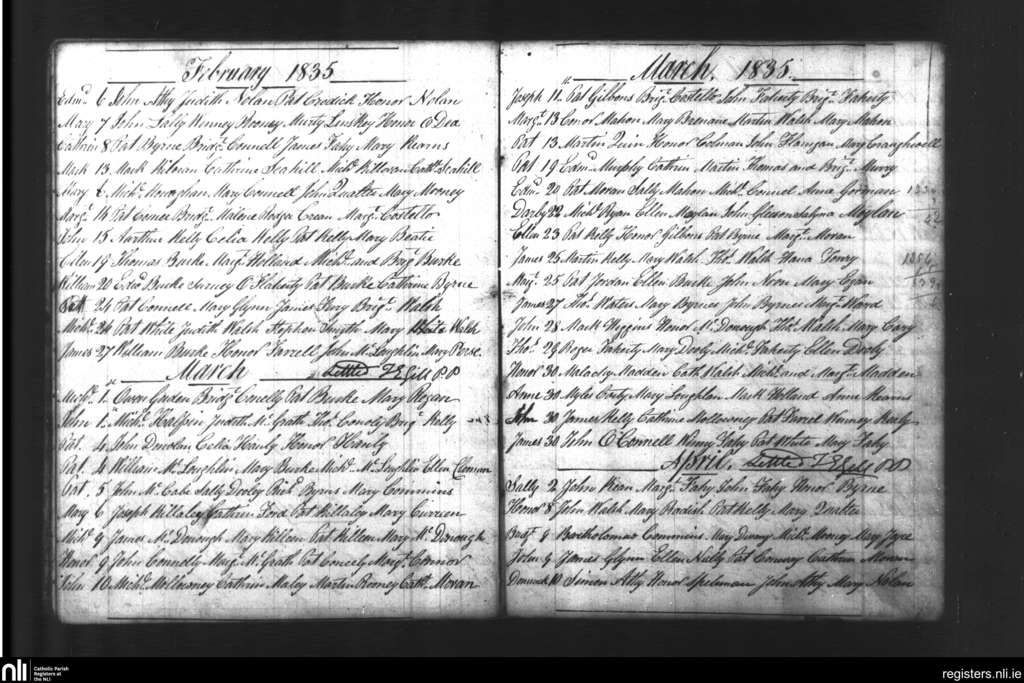 February 1835
Edmd. 6 John Atthy Judith Nolan Pat Credick Honor Nolan
Mary 7 John Lally Winney Mooney Murty Luskey Honor O Dea
Cathrin 8 Pat Byrne Bridgt. Connell James Fahy Mary Kearns
Mark 13 Mark Kilroan Cathrine Scahill Michl. Killoran Cathn. Scahill
Mary 6 Michl. Monaghan Mary Connell John Qualter Mary Mooney
Margt. 14 Pat Conice Bridgt. Crean Margt. Costello
John 15 Arthur Kelly Celia Kelly Pat Kelly Mary Beatie
Ellen 19 Thomas Burke Margt. Holland Michl. and Bridgt. Burke
William 20 Burke Surney O Flaherty Pat Burke Catherine Byrne
Pat 24 Pat Connell Mary Glynn James Bridgt. Walsh
Michl. 24 Pat White Judith Walsh Stephen Smyth Mary White Walsh
James 27 William Burke Honor Farrell John Mc. Loughlin Mary Perse
March Settled P P
Michl. 1 Owen Gaden Bridgt. Cnelly Pat Burke Mary Regan
John 1 Michl. Halpin Judith Mc. Grath Thos. Conoly Bridgt. Kelly
Pat. 4 John Donolan Celia Hanly Honor Hanly
Pat. 4 William Mc. Loughlin Mary Burke Michl. Mc. Loughlin Ellen
Pat 5 John Mc. Cabe Sally Dooly Richd. Byrns Mary Commins
Mary 6 Joseph Killaley Cathrin Ford Pat Killaley Mary Curreen
Michl. 9 James Mc. Donough Mary Killeen Pat Killeen Mary Mc. Donough
Honor 9 John Connolly Margt. Mc. Grath Pat Coneely Margt. Connor
John 10 Michl. Mollowney Cathrin Maley Martin Rooney Cathn. Moran
March. 1835
Joseph 11 Pat Gilbons Bridgt. Costello John Faherty Bridgt. Faherty
Margt. 13 Mahon Mary Brenane Martin Walsh Mary Mahon
Pat 13 Martin Quin Honor Cochnan John Flanigan Mary Craughwell
Pat 19 Edmd. Murphy Cathrin Martin Thomas and Bridgt. Murry
Edmd. 20 Pat Moran Sally Mahon Michl. Connel Anne Gorman
Darby 22 Michl. Ryan Ellen Moylan John Gleeson Moylan
Ellen 23 Pat Kelly Honor Gilbons Pat Byrne Margt. Moran
James 25 Martin Kelly Mary Walsh Thos. Walsh Hana
Margt. 25 Pat Jordan Ellen Burke John Neon Mary Egan
James 27 Thos. Waters Mary Byrnes John Byrnes Margt. Ward
John 28 Mark Higgins Honor Mc. Donough Thos. Walsh Mary Cary
Thos. 29 Roger Faherty Mary Dooly Michl. Faherty Ellen Dooly
Honor 30 Malachy Madden Cath. Walsh Michl. and Margt. Madden
Anne 30 Myles Mary Loughlan Mark Holland Anne Kearns
John 30 James Kelly Cathrine Molloweney Pat Winney Healy
James 30 John O'Connell Winny Fahy Pat White Mary Fahy
April. Settled P P
Sally 2 John Kean Margt. Fahy John Fahy Honor Byrne
Honor 8 John Walsh Mary Rodish Pat Kelly Mary Qualter
Bridgt. 9 Bartholomew Commins Mary Michl. Mooney Mary Joyce
John 9 James Glynn Ellen Nelly Pat Conway Cathrin
10 Simon Atthy Honor Spelman John Atthy Mary Nolan
nli Catholic Parish
Registers at
the NLI
registers.nli.ie